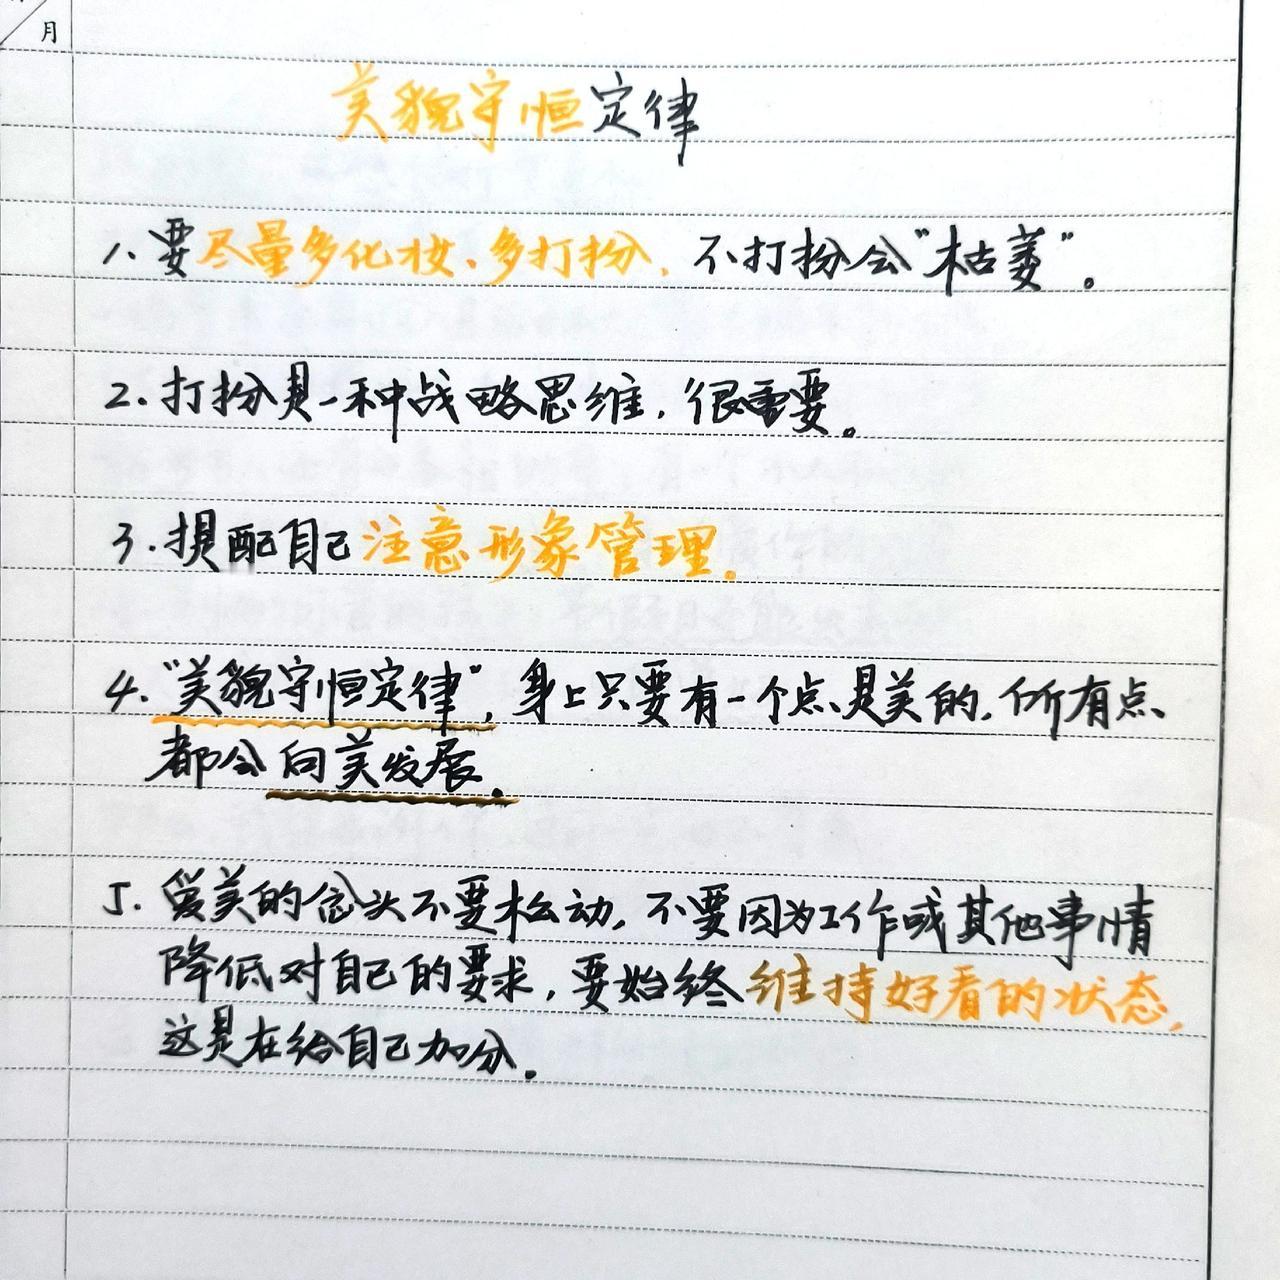 月
美貌守恒定律
1.要尽量多化妆、多打扮,不打扮会“枯萎”。
2.打扮是一种战略思维,很重要。
3.提醒自己注意形象管理。
4.“美貌守恒定律”,身上只要有一个点是美的,所有点
都会向美发展。
5.爱美的念头不要松动,不要因为工作或其他事情
降低对自己的要求,要始终维持好看的状态,
这是在给自己加分.